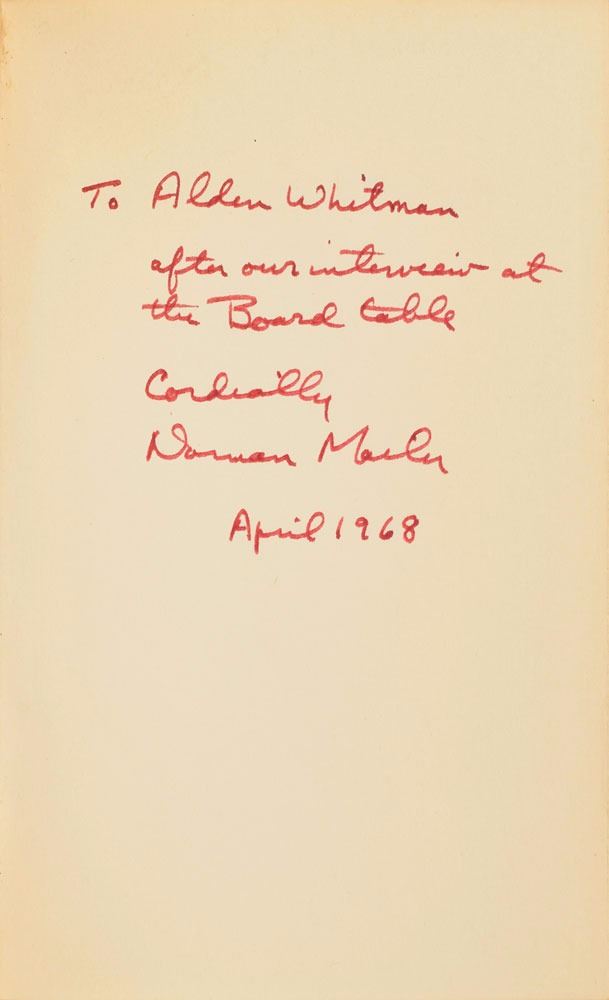 To Alden Whitman
after our interview at
the Board table
Cordially
Norman Mailer
April 1968